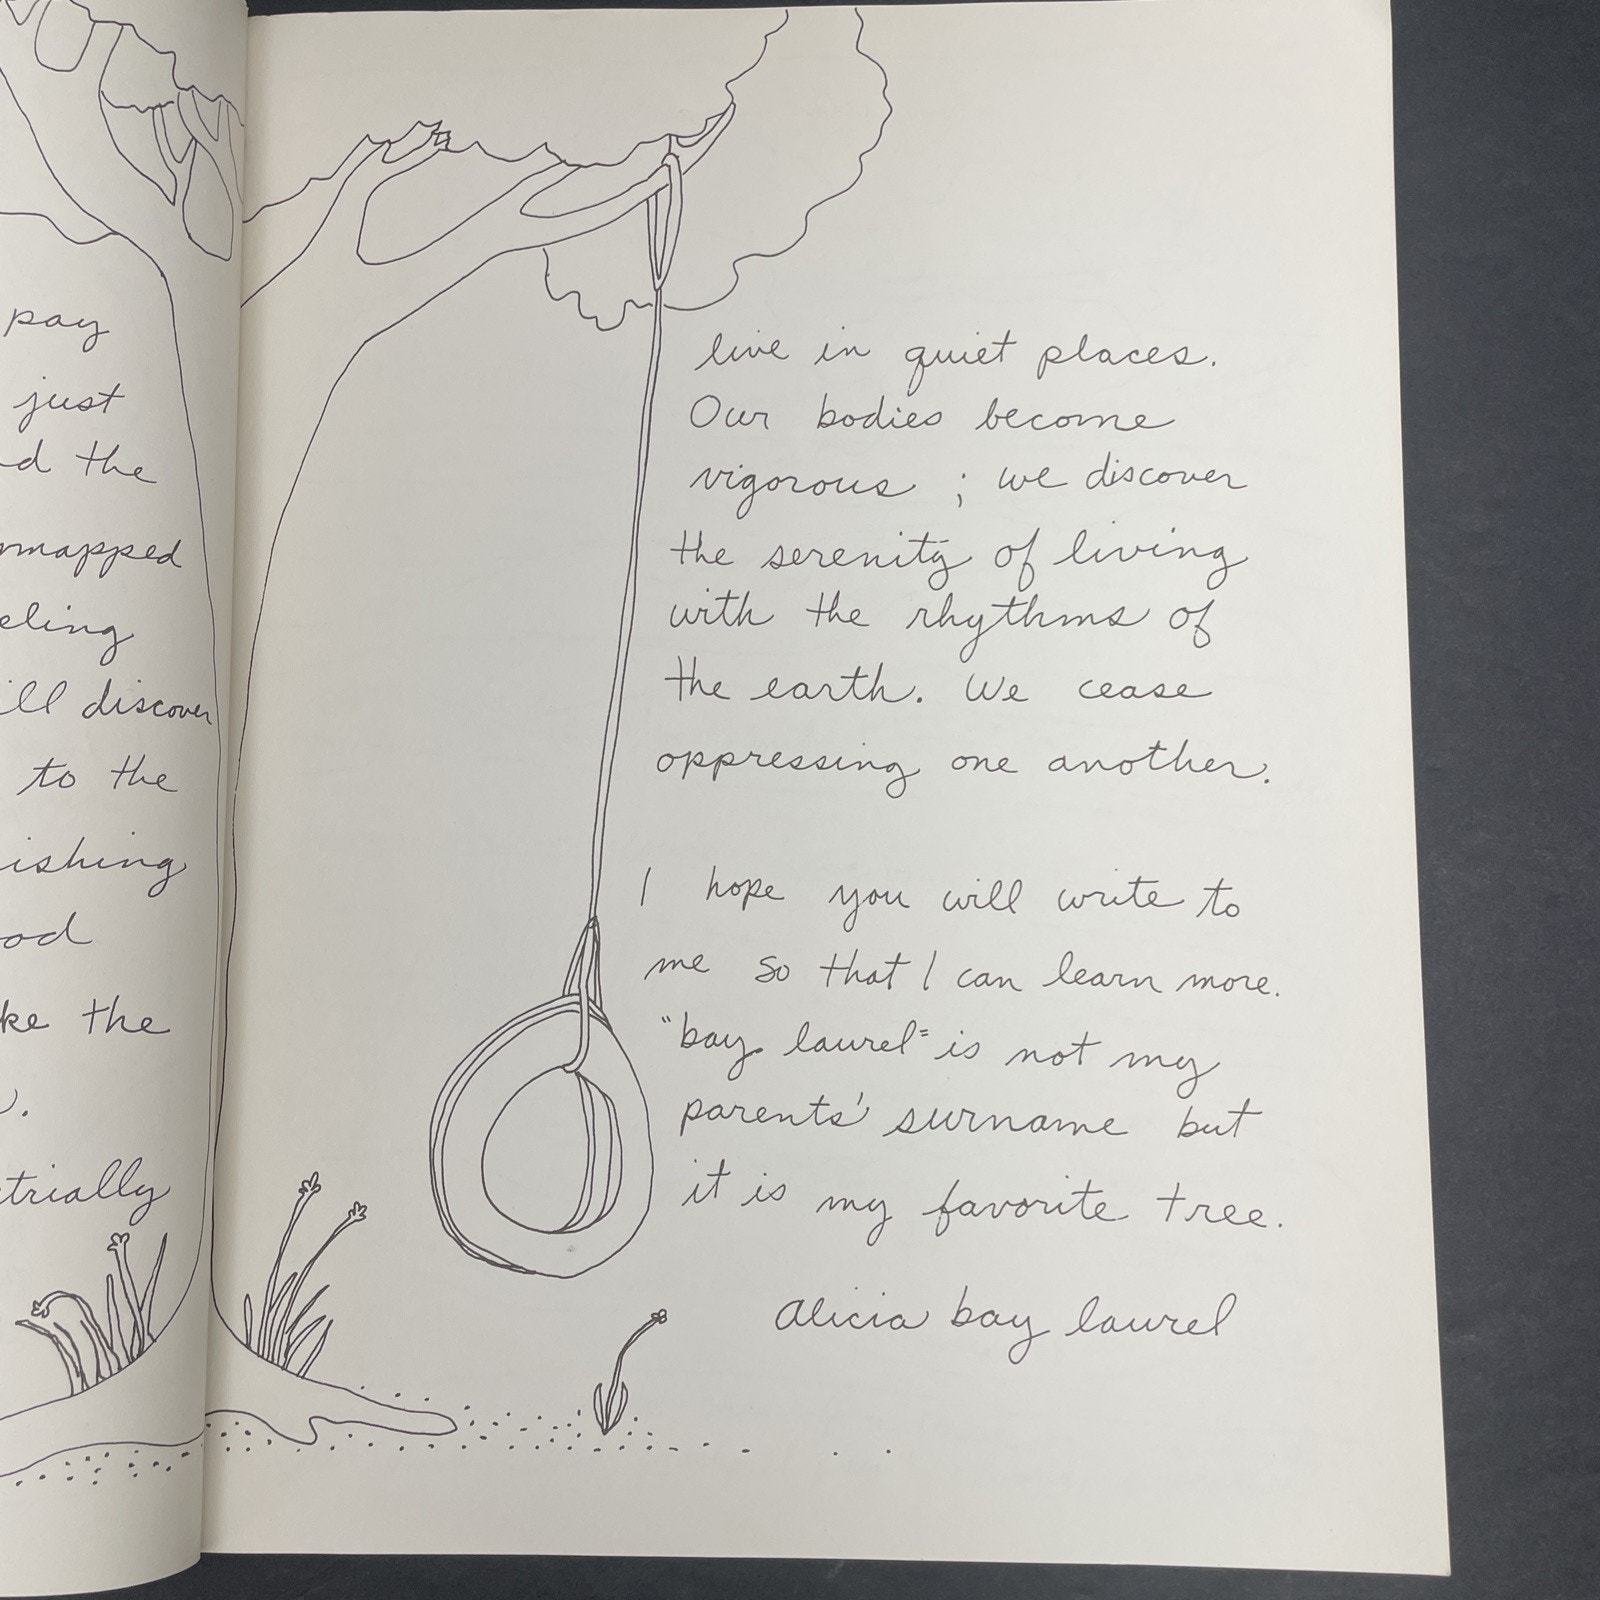 pay
just
the
discover
to the
the
live in quiet places.
Our bodies become
vigorous ; we discover
the serenity of living
with the rhythms of
the earth. We cease
oppressing one another.
I hope you will write to
me so that I can learn more.
"bay laurel" is not my
parents' surname but
it is my favorite tree.
Alicia bay laurel